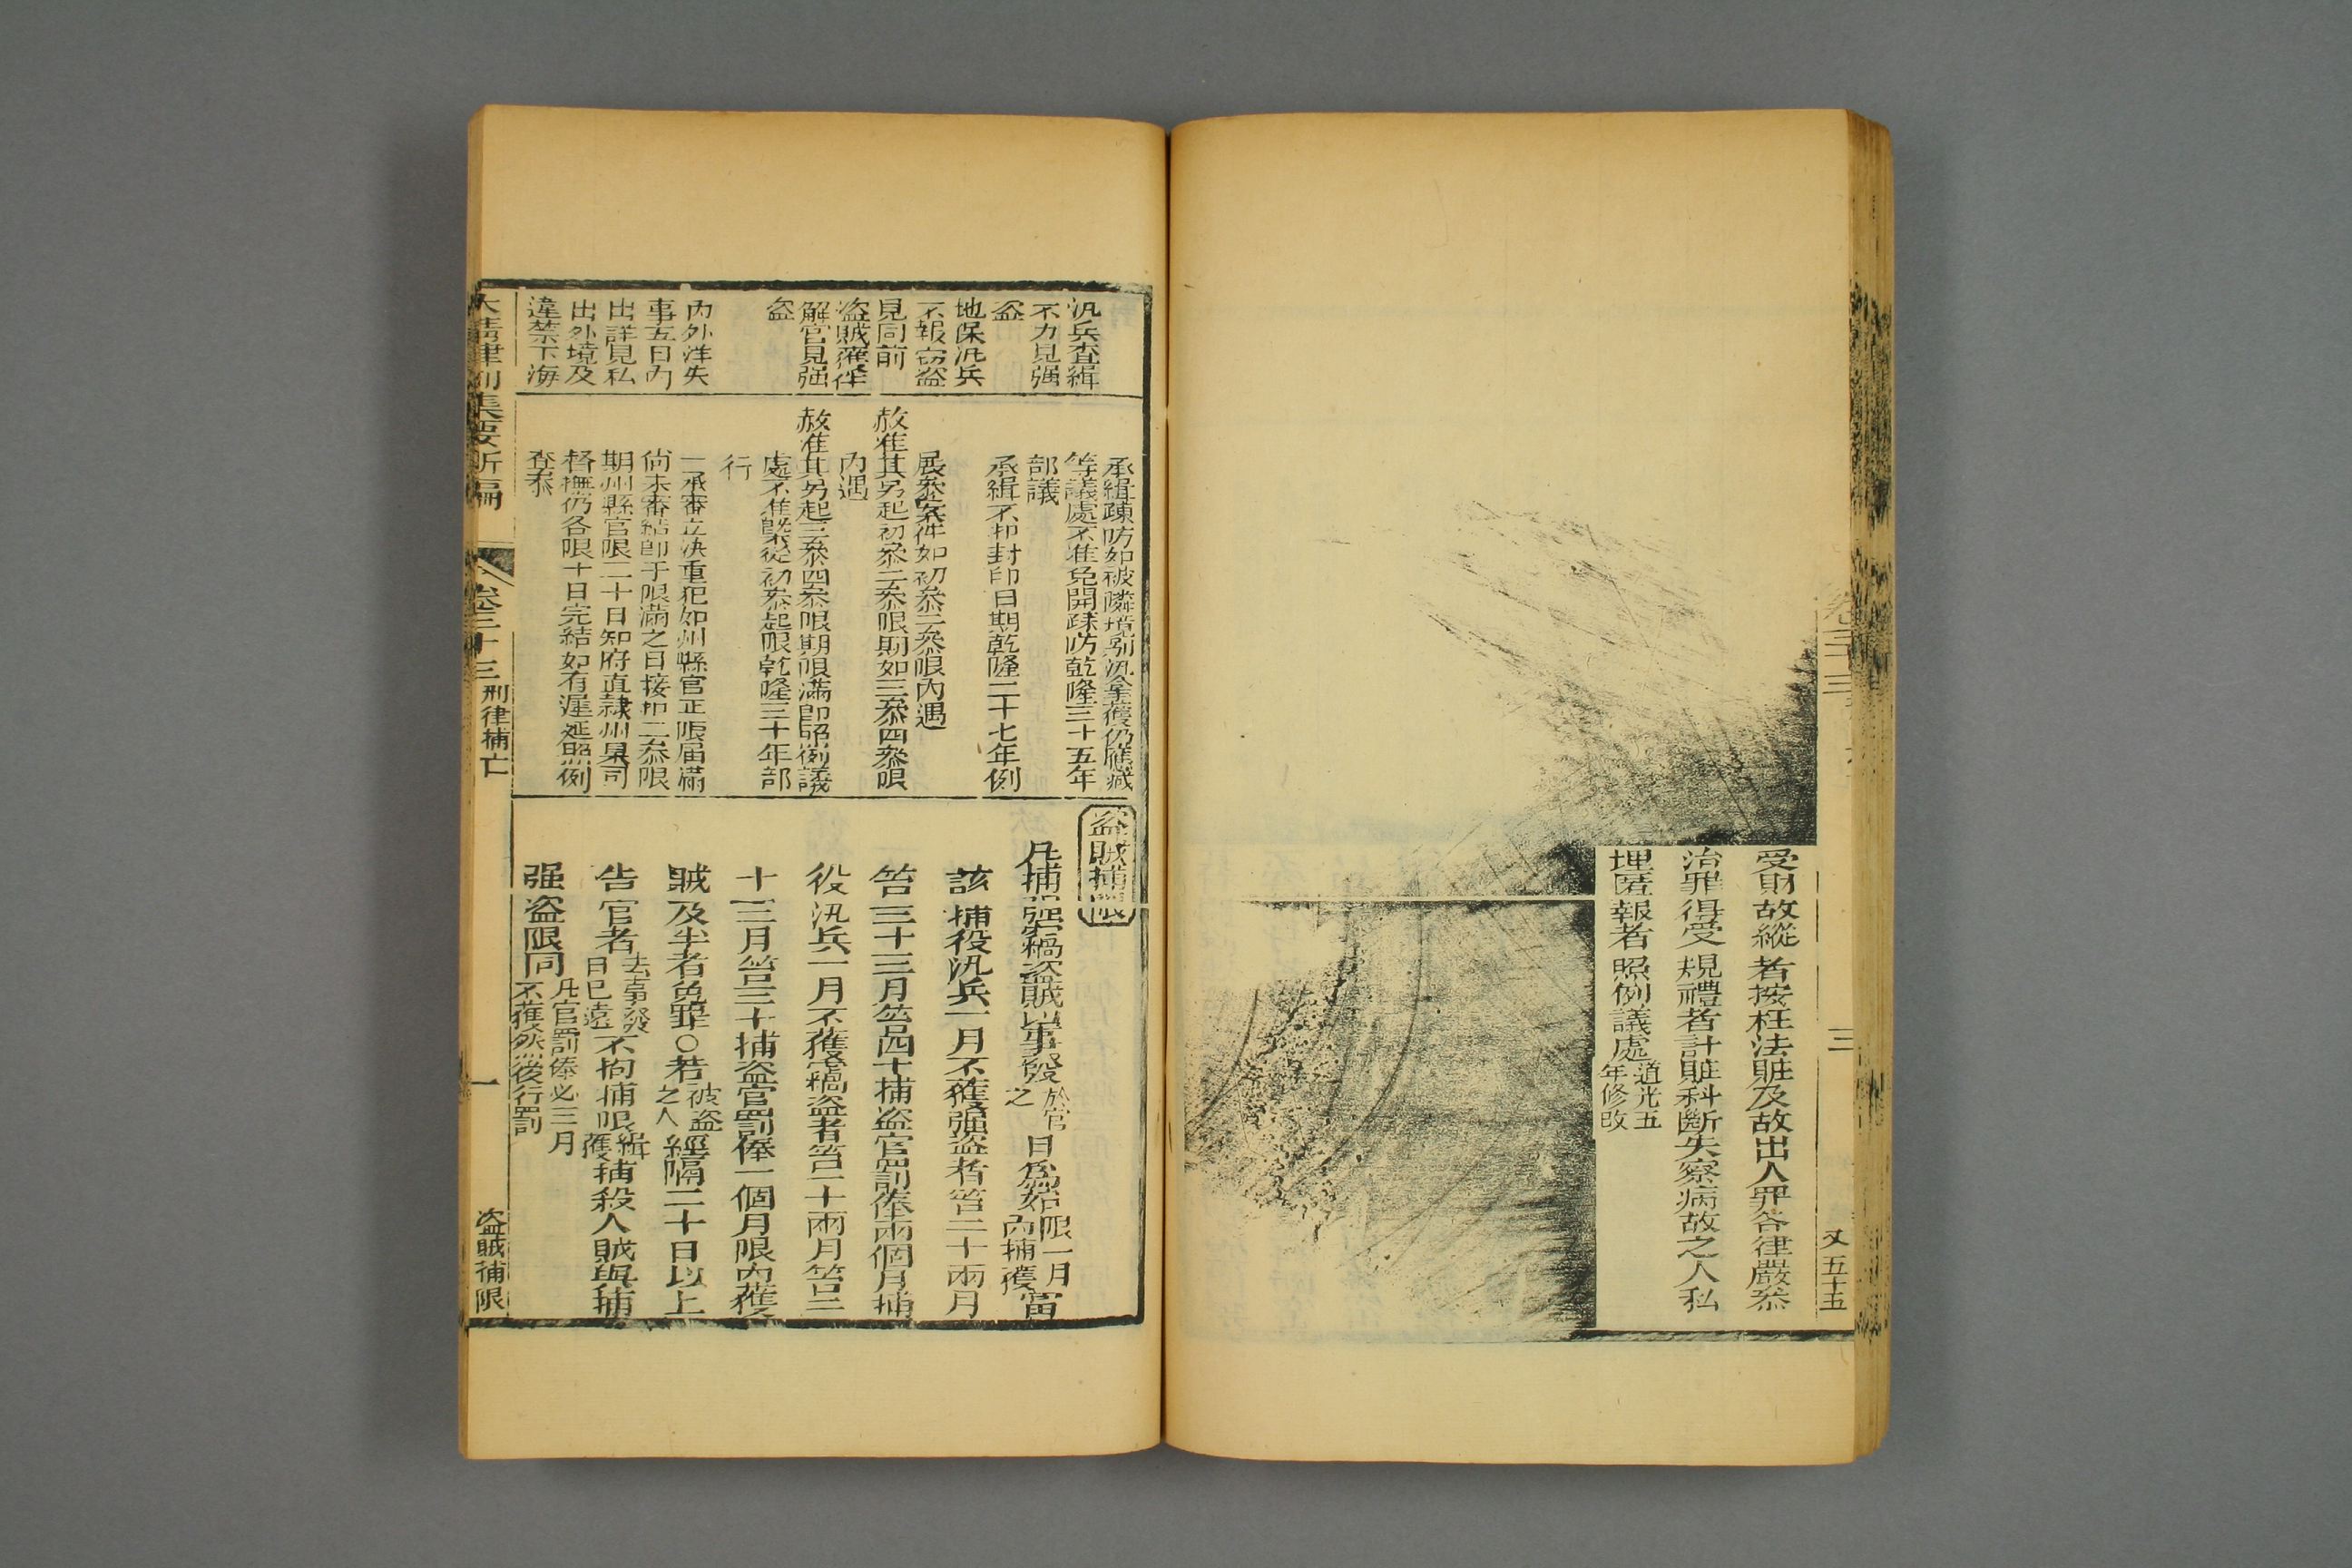 受財故縱者按枉法賍及故出入罪各律嚴叅
治罪得受規禮者計賍科斷失察病故之人私
埋匿報者照例議處道光五年修改
三
又五十五
汛兵查緝
不力見强
盜
地保汛兵
不報窃盜
見同前
盜賊獲伴
解官見强
盜
內外洋失
事五日內
出詳見私
出外境及
違禁下海
承緝疎防如被隣境別汛拿獲仍應
等議處不准免開疎防乾隆三十五年
部議
承緝不扣封印日期乾隆二十七年例
展叅案件如初叅二叅限內遇
赦准其另起初叅二叅限期如三叅四叅限
內遇
赦准其另起三叅四叅限期限滿卽照例議
處不准槩從初叅起限乾隆三十年部
行
一承審立决重犯如州縣官正限届滿
倘未審結卽于限滿之日接扣二叅限
期州縣官限二十日知府直隸州臬司
督撫仍各限十日完結如有遲延照例
查叅
盜賊捕限
凡捕强窃盜賊以事發於官之日爲始限一月內捕獲當
該捕役汛兵一月不獲强盜者笞二十兩月
笞三十三月笞四十捕盜官罰俸兩個月捕
役汛兵一月不獲窃盜者笞一十兩月笞二
十三月笞三十捕盜官罰俸一個月限內獲
賊及半者免罪○若被盜之人經隔二十日以上
告官者去事發日已遠不拘捕限緝獲捕殺人賊與捕
强盜限同凡官罰俸必三月不獲然後行罰
大淸律例集要新編
卷三十三
刑律捕亡
一
盜賊捕限